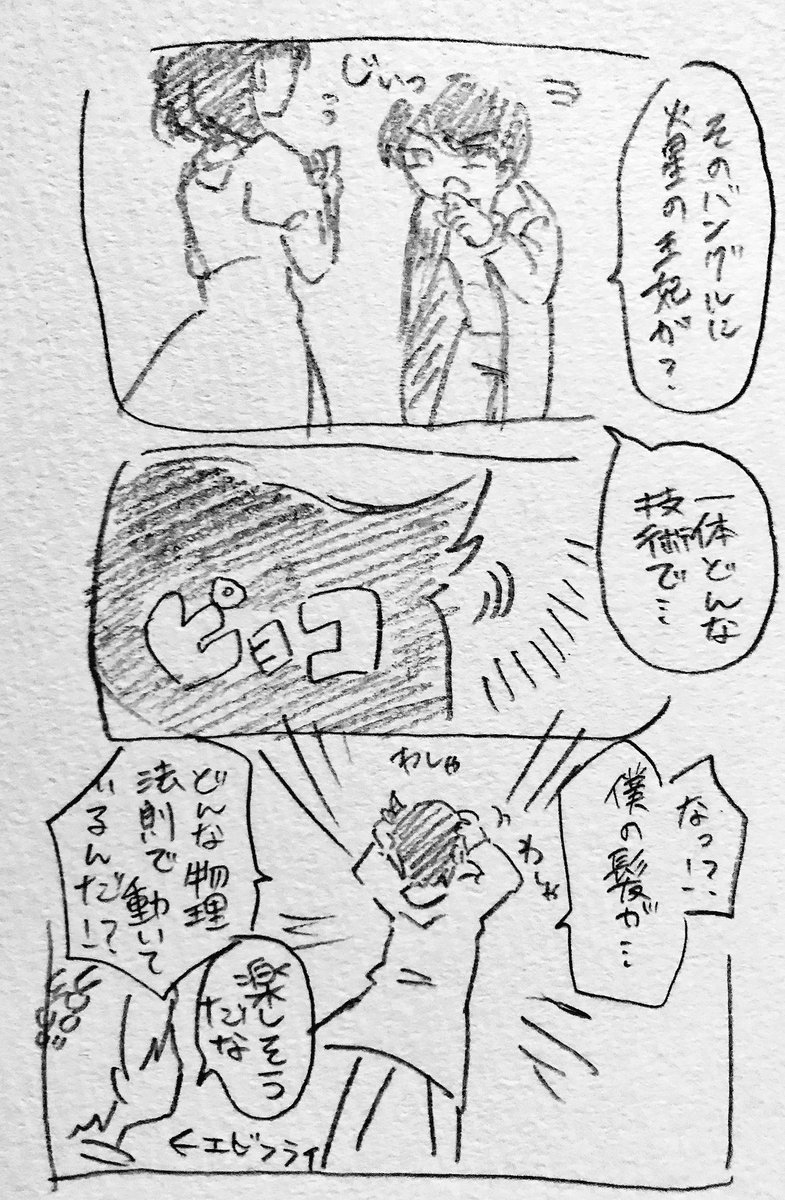 そのバングルに
火星の王妃が?
じぃっ
一体どんな
技術で…
ピョコ
なっ!?
僕の髪が…
わしゃ
わしゃ
どんな物理
法則で動いて
いるんだ!?
楽しそう
だな
←エビフライ